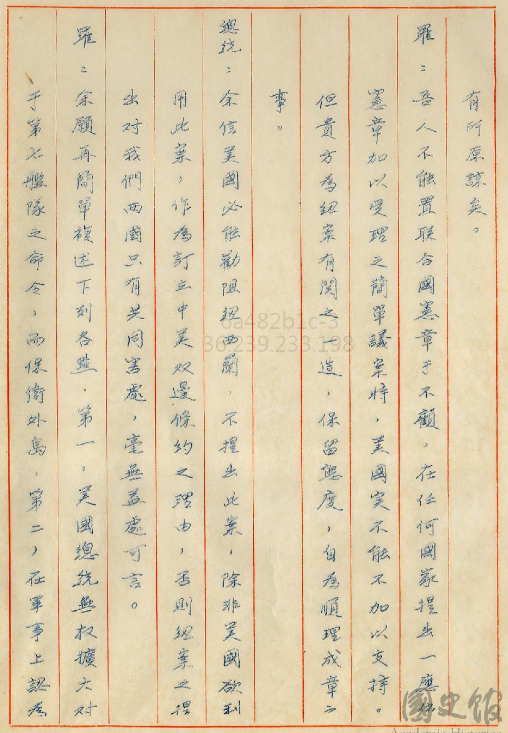 有所原諒矣。
羅：吾人不能置聯合國憲章于不顧，在任何國家提出一應依
憲章加以受理之簡單議案時，美國实不能不加以支持。
但貴方為紐案有関之一造，保留態度，自為順理成章之
事。
總統：余信美國必能勸阻紐西蘭，不提出此案，除非美國欲利
用此案，作為訂立中美双邊條約之理由，否則紐案之提
出对我們両國只有共同害處，毫無益處可言。
羅：余願再簡單複述下列各點，第一，美國總統無权擴大对
于第七艦隊之命令，而保衛外島，第二，在軍事上認為
6a482b1c-3
36.239.233.198
國史館
Academia Historica